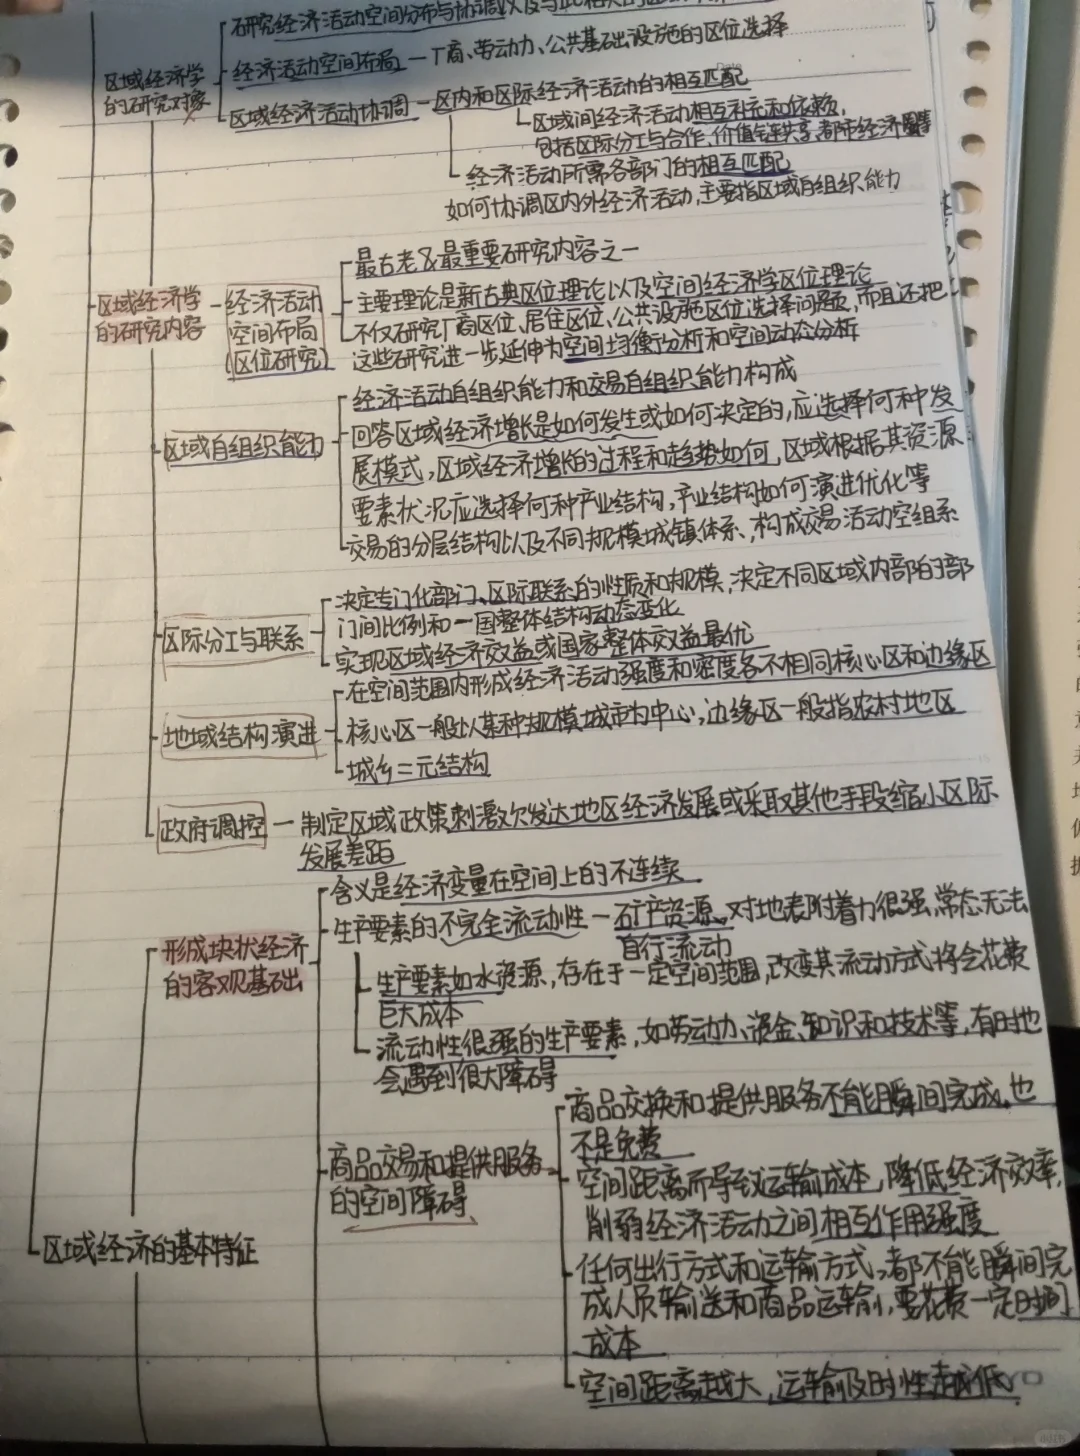 研究经济活动空间分布与协调以及与此相关的
区域经济学
的研究对象
经济活动空间布局—厂商、劳动力、公共基础设施的区位选择
区域经济活动协调—区内和区际经济活动的相互匹配
区域间经济活动相互补充和依赖,
包括区际分工与合作、价值链共享、都市经济圈等
经济活动所需各部门的相互匹配
如何协调区内外经济活动,主要指区域自组织能力
区域经济学
的研究内容
经济活动
空间布局
(区位研究)
最古老&最重要研究内容之一
主要理论是新古典区位理论以及空间经济学区位理论
不仅研究厂商区位、居住区位、公共设施区位选择问题,而且还把
这些研究进一步延伸为空间均衡分析和空间动态分析
区域自组织能力
经济活动自组织能力和交易自组织能力构成
回答区域经济增长是如何发生或如何决定的,应选择何种发
展模式,区域经济增长的过程和趋势如何,区域根据其资源
要素状况应选择何种产业结构,产业结构如何演进优化等
交易的分层结构以及不同规模城镇体系,构成交易活动空组系
区际分工与联系
决定专门化部门、区际联系的性质和规模,决定不同区域内部的部
门间比例和一国整体结构动态变化
实现区域经济效益或国家整体效益最优
地域结构演进
在空间范围内形成经济活动强度和密度各不相同核心区和边缘区
核心区一般以某种规模城市为中心,边缘区一般指农村地区
城乡二元结构
政府调控—制定区域政策刺激欠发达地区经济发展或采取其他手段缩小区际
发展差距
形成块状经济
的客观基础
含义是经济变量在空间上的不连续
生产要素的不完全流动性—矿产资源、对地表附着力很强,常态无法
自行流动
生产要素如水资源,存在于一定空间范围,改变其流动方式将会花费
巨大成本
流动性很强的生产要素,如劳动力、资金、知识和技术等,有时也
会遇到很大障碍
商品交易和提供服务
的空间障碍
商品交换和提供服务不能瞬间完成,也
不是免费
空间距离而导致运输成本,降低经济效率,
削弱经济活动之间相互作用强度
区域经济的基本特征
任何出行方式和运输方式,都不能瞬间完
成人员输送和商品运输,要花费一定时间
成本
空间距离越大,运输及时性越低